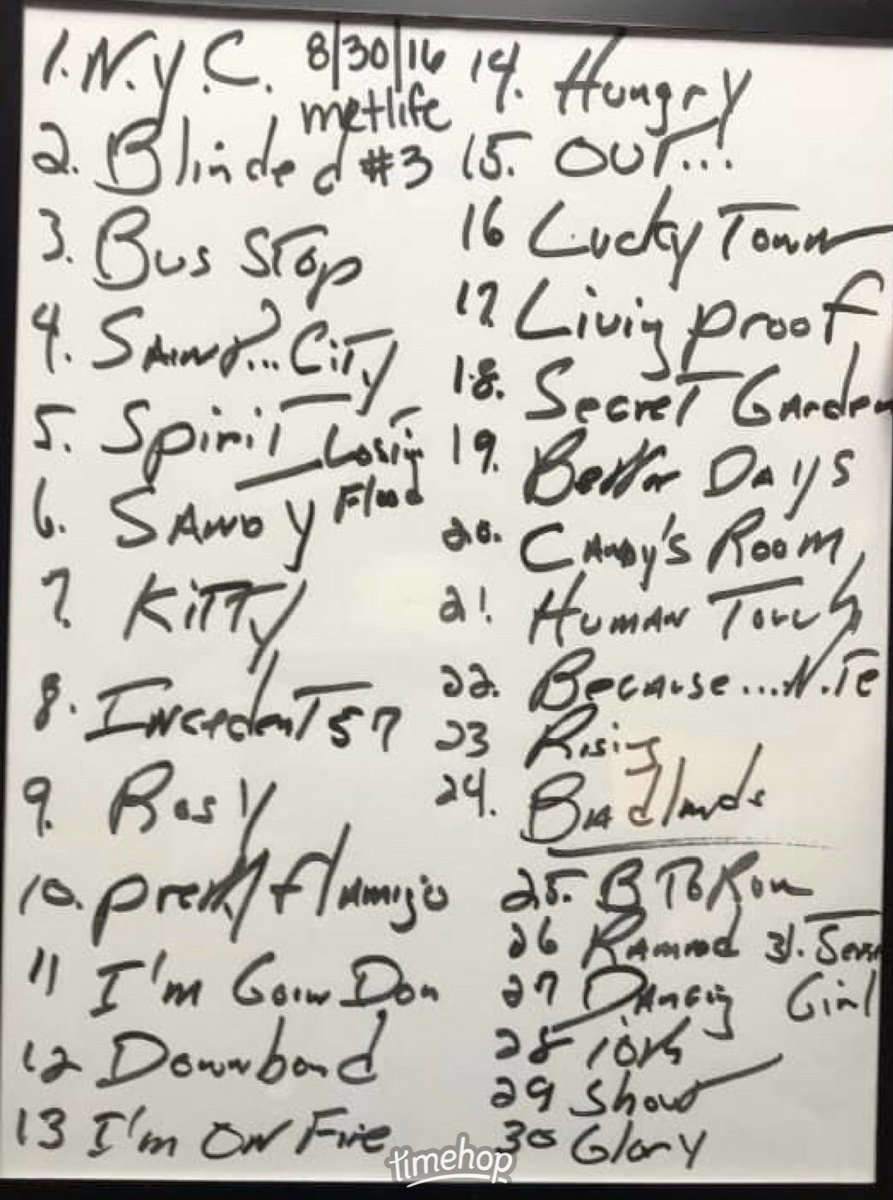 1. N.Y.C.
8/30/16
metlife
2. Blinded #3
3. Bus Stop
4. SAINT...CiTy
5. SpiriT
Losin
Flood
6. SANDy
7. KiTTy
8. IncedenT 57
9. Rosy
10. preTTy flAmigo
11 I'm Goin Don
12 Downbond
13 I'm ON Fire
14. Hungry
15. OUT...
16 Lucky Town
17. Livig proof
18. SecreT Garden
19. Better DAyS
20. CANdy's Room
21. HumAN Touch
22. BecAuse...N.Te
23 Rising
24. BAdlands
25. B To Run
26 Ramrod
27 DAncig
28 10th
29 Shout
30 Glory
31. Jersey
Girl
timehop